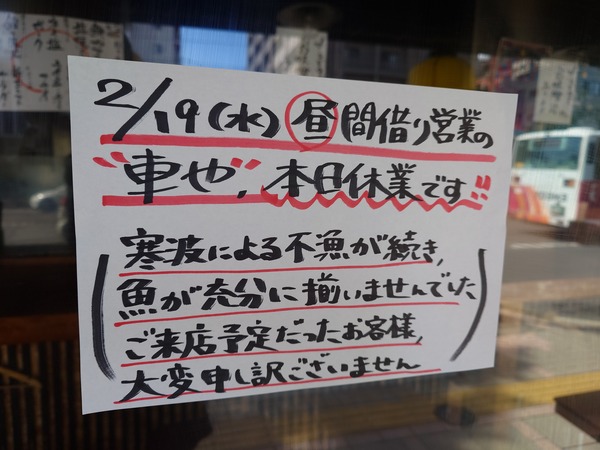 2/19(水)昼間借り営業の
"車也"、本日休業です!!
寒波による不漁が続き、
魚が充分に揃いませんでした
ご来店予定だったお客様、
大変申し訳ございません